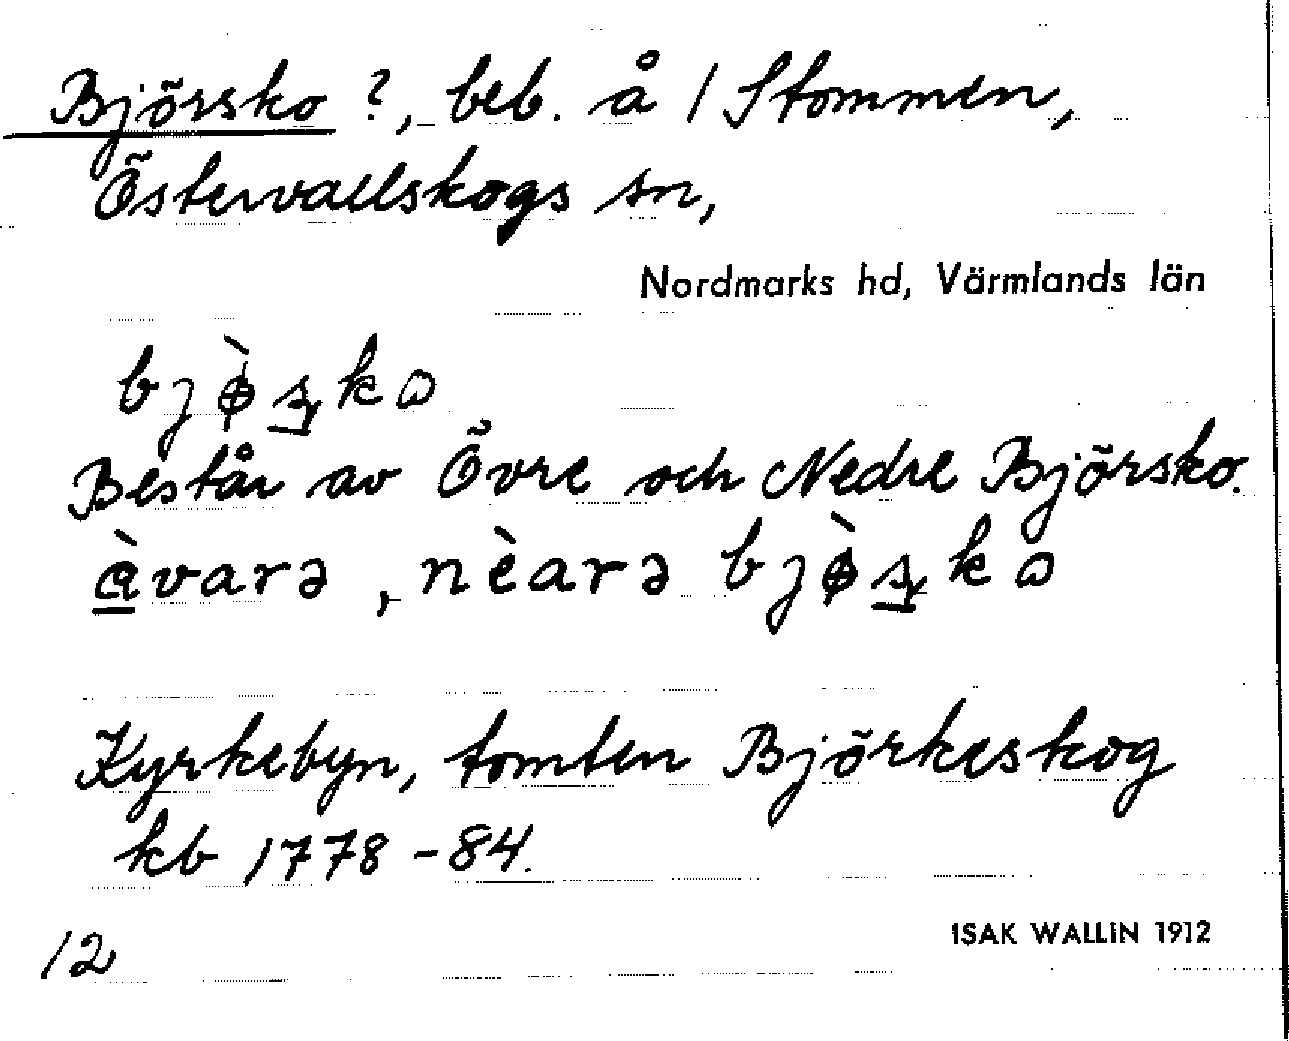 Björsko ?, beb. å 1 Stommen,
Östervallskogs sn,
Nordmarks hd, Värmlands län
bjø̀ʂkɷ
Består av Övre och Nedre Björsko.
à̱varə, nèarə bjø̀ʂkɷ
Kyrkebyn, tomten Björkeskog
kb 1778-84.
12
ISAK WALLIN 1912